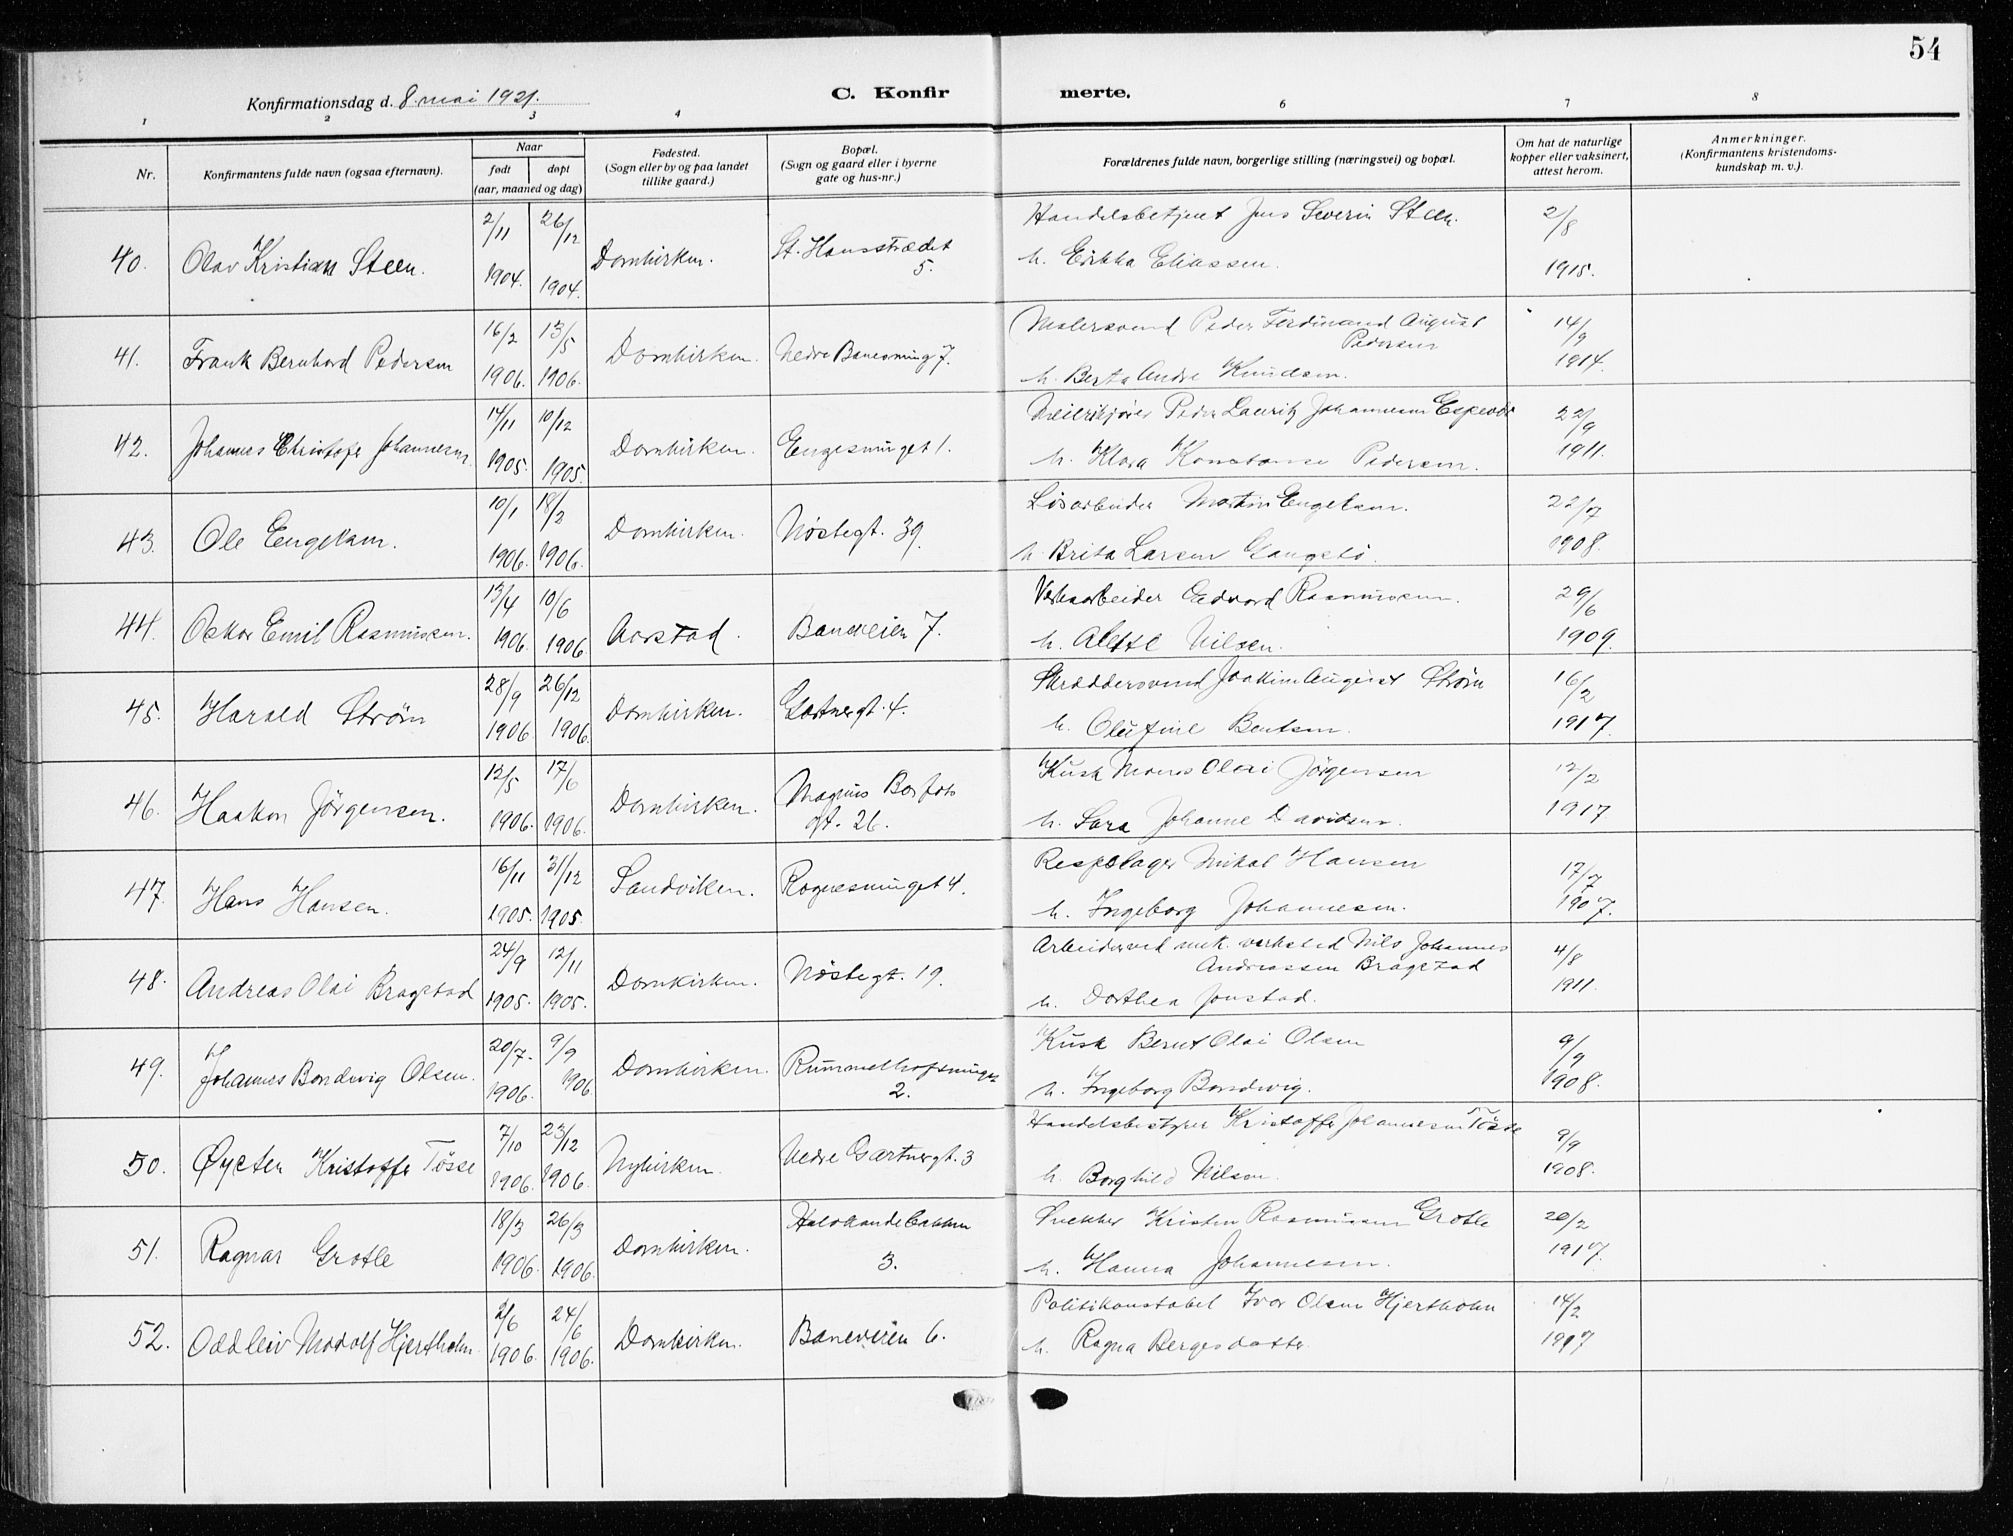 54
Konfirmationsdag d. 8. mai 1921.
C. Konfir merte.
1 2 3 4 6 7 8
Nr.
Konfirmantens fulde navn (ogsaa efternavn).
Naar
født døpt
(aar, maaned og dag)
Fødested.
(Sogn eller by og paa landet
tillike gaard.)
Bopæl.
(Sogn og gaard eller i byerne
gate og hus-nr.)
Forældrenes fulde navn, borgerlige stilling (næringsvei) og bopæl.
Om hat de naturlige
kopper eller vaksinert,
attest herom.
Anmerkninger.
(Konfirmantens kristendoms-
kundskap m. v.).
40. Olav Kristian Steen. 2/11 1904. 26/12 1904. Domkirken. St. Hansstrædet 5.
Handelsbetjent Jens Severin Steen.
h. Erikka Eliassen. 2/8 1915.
41. Frank Bernhard Pedersen 16/2 1906. 13/5 1906. Domkirken. Nedre Banesmug 7.
Malersvend Peder Ferdinand August
Pedersen
h. Berta Andre Knudsen. 14/9 1914.
42. Johannes Christofer Johannesen 14/11 1905. 10/12 1905. Domkirken. Engesmuget 1.
Peder Lauritz Johannesen Espevær
h. Klara Konstanse Pedersen. 22/9 1911.
43. Ole Engelsen. 10/1 1906. 18/2 1906. Domkirken. Nøstegt. 39.
Løsarbeider Martin Engelsen.
h. Brita Larsen 22/7 1908.
44. Oskar Emil Rasmussen. 13/4 1906. 10/6 1906. Aarstad. Baneveien 7.
Verksarbeider Edvard Rasmussen.
h. Alette Nilsen. 29/6 1909.
45. Harald Strøm 28/9 1906. 26/12 1906. Domkirken. Gartnergt. 4.
Skræddersvend Joakim August Strøm
h. Olufine Bentsen. 16/2 1917.
46. Haakon Jørgensen. 12/5 1906. 17/6 1906. Domkirken. Magnus Barfots
gt. 26.
Kusk Mons Olai Jørgensen
h. Sara Johanne Davidsen. 12/2 1917
47. Hans Hansen. 16/11 1905. 31/12 1905. Sandviken. Rognesmuget 4.
Repslager Mikal Hansen
h. Ingeborg Johannesen. 17/7 1907.
48. Andreas Olai Bragstad 24/9 1905. 12/11 1905. Domkirken. Nøstegt. 19.
Arbeider ved mek. verksted Nils Johannes
Andreassen Bragstad
h. Dorthea Jonstad. 4/8 1911.
49. Johannes Bondevig Olsen. 20/7 1906. 9/9 1906 Domkirken. Rummelhofsmuget
2.
Kusk Bernt Olai Olsen
h. Ingeborg Bondevig. 9/9 1908.
50. Øysten Kristoffer Tøsse 7/10 1906. 23/12 1906. Nykirken. Nedre Gartnergt. 3
Handelsbestyrer Kristoffer Johannesen Tøsse
h. Borghild Nilsen. 9/9 1908.
51. Ragnar Grotle 18/3 1906. 26/3 1906. Domkirken. Halvkandebakken
3.
Snekker Kristen Rasmussen Grotle
h. Hanna Johannesen. 20/2 1917.
52. Oddleiv Modolf Hjertholm. 2/6 1906. 24/6 1906. Domkirken. Baneveien 6.
Politikonstabel Ivar Olsen Hjertholm
h. Ragna Bergesdatter. 14/2 1917